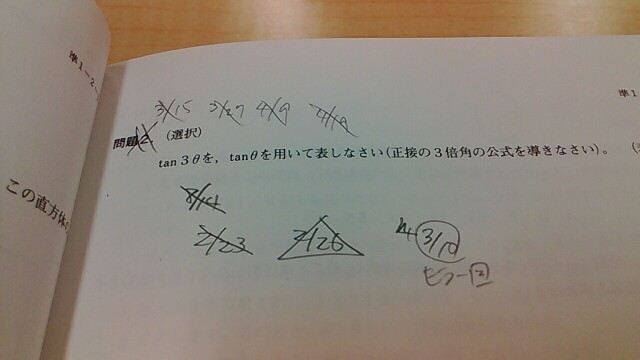 準1-2-
準1
3/15 3/27 4/9 4/19
問題2. (選択)
tan 3θを,tanθを用いて表しなさい(正接の3倍角の公式を導きなさい)。
この直方体
2/23 2/26 3/10